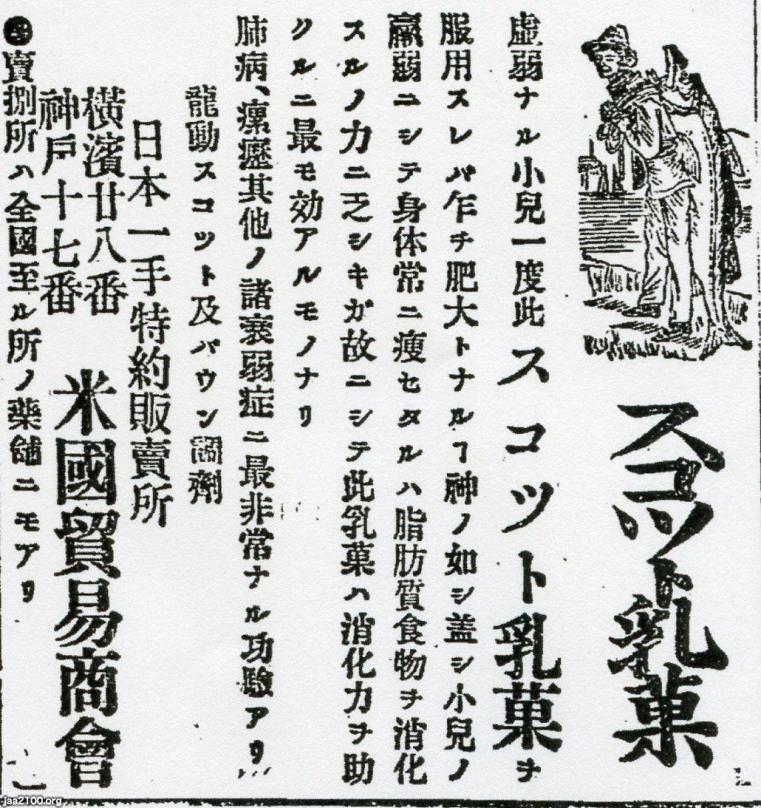 スコット乳菓
虚弱ナル小兒一度此スコット乳菓ヲ
服用スレバ乍チ肥大トナルヿ神ノ如シ盖シ小兒ノ
羸弱ニシテ身体常ニ瘦セタルハ脂肪質食物ヲ消化
スルノ力ニ乏シキガ故ニシテ此乳菓ハ消化力ヲ助
クルニ最モ効アルモノナリ
肺病、瘰癧其他ノ諸衰弱症ニ最非常ナル功驗アリ
龍動スコット及バウン調劑
日本一手特約販賣所
橫濱廿八番
神戶十七番
米國貿易商會
賣捌所ハ全國至ル所ノ藥舗ニモアリ
jaa2100.org